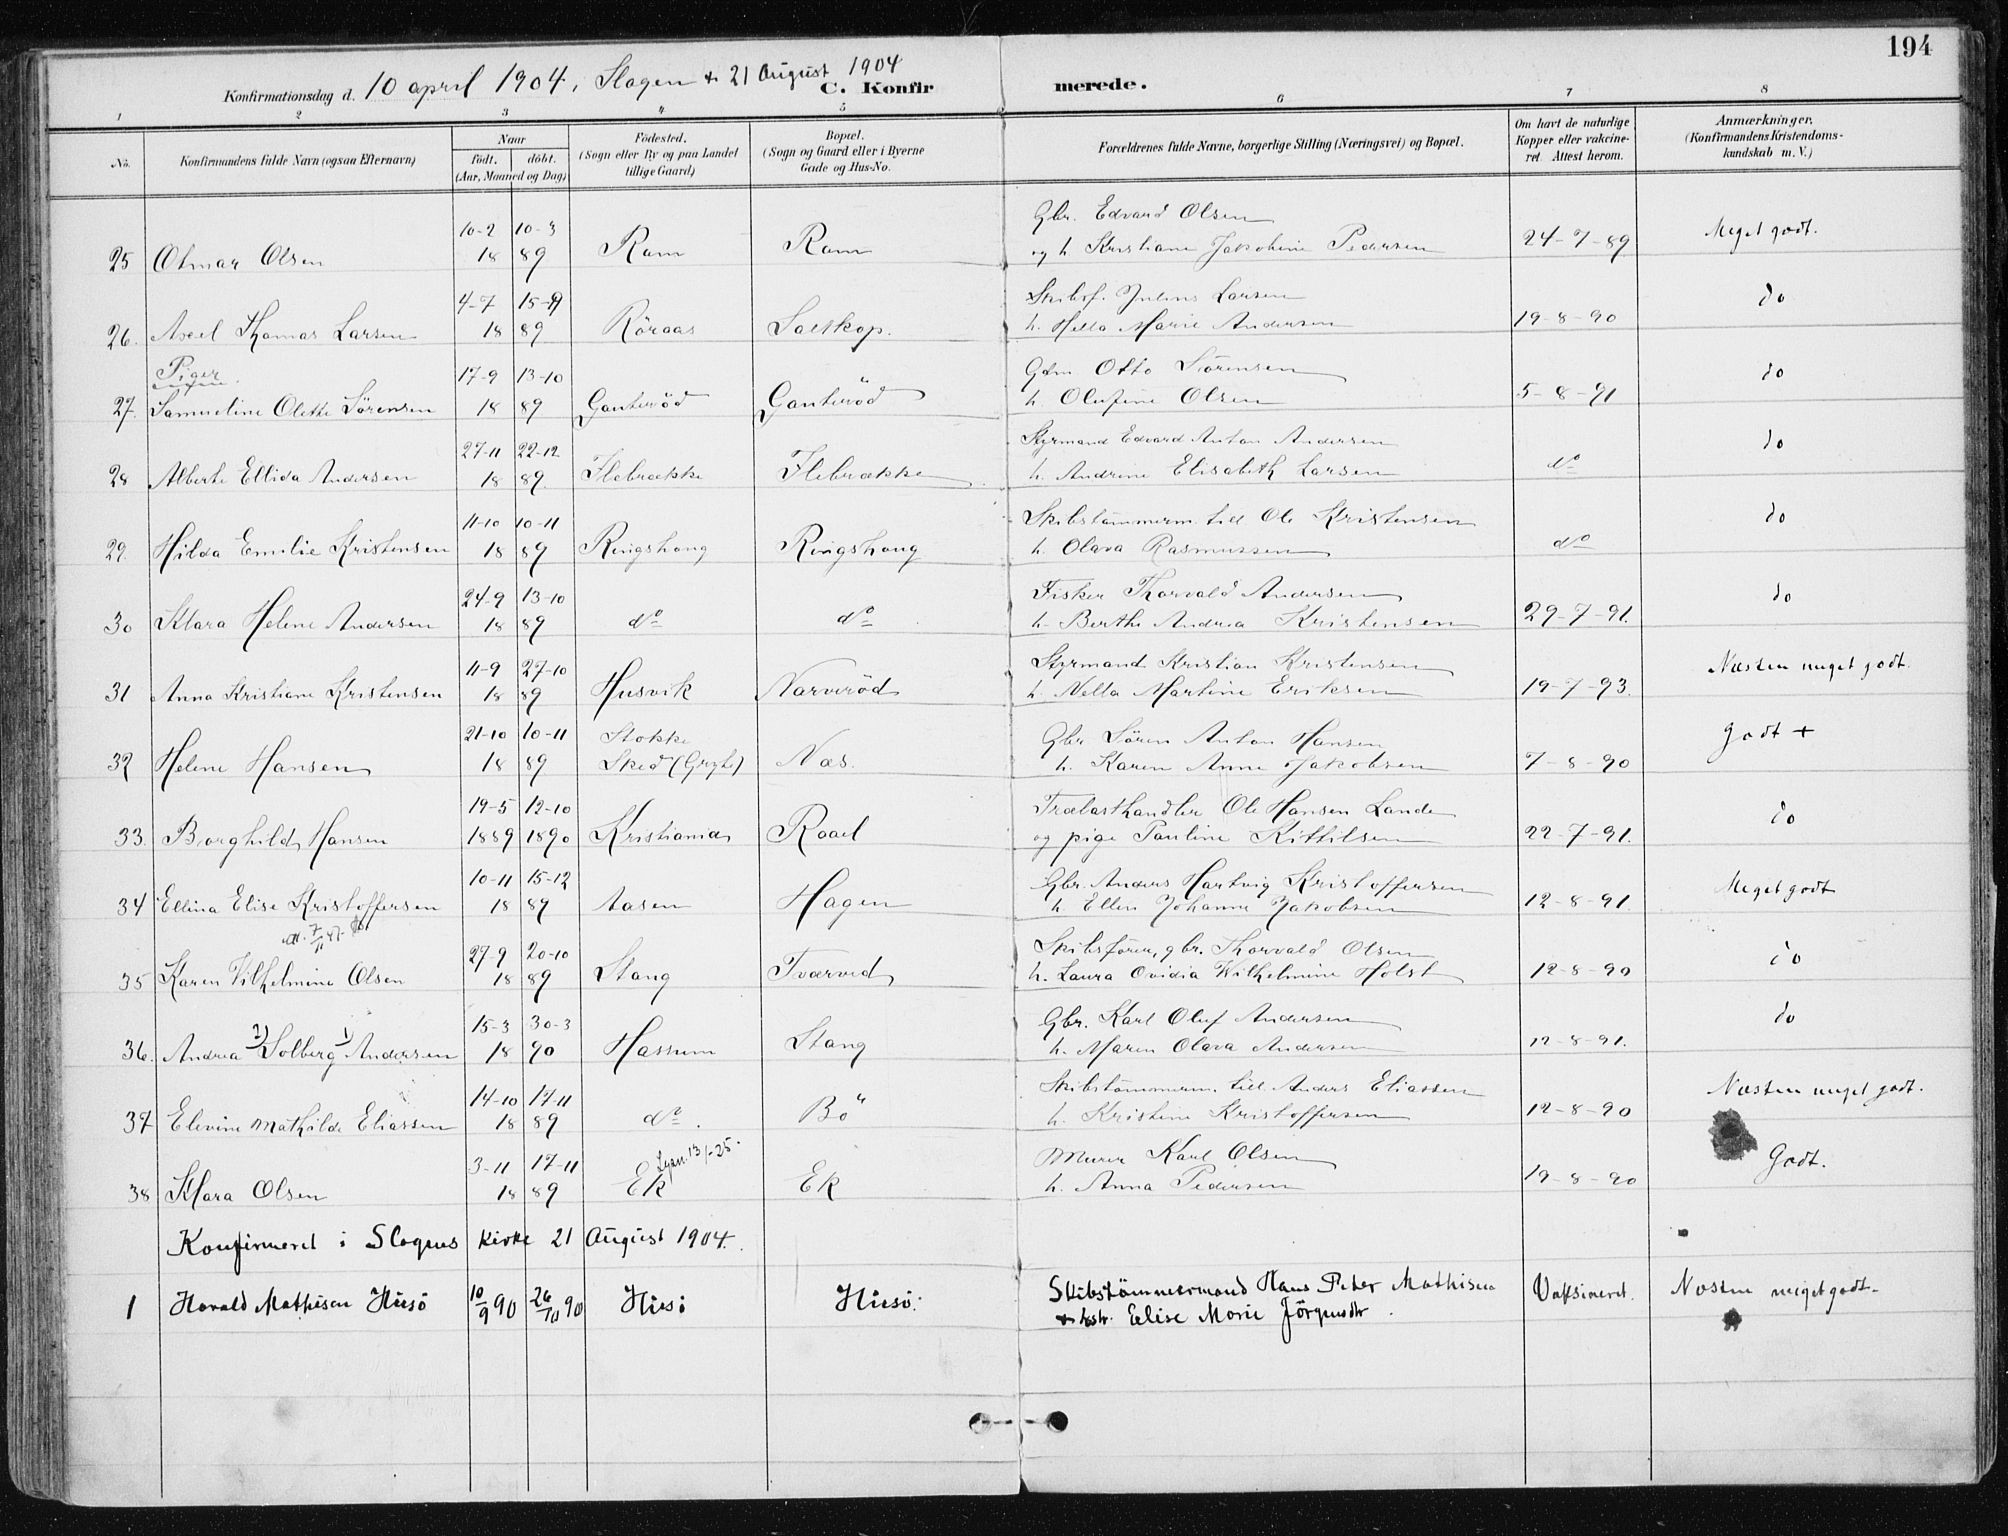 194
Konfirmationsdag d. 10 april 1904, Slagen + 21 August 1904
C. Konfirmerede.
1 2 3 4 5 6 7 8
No. Konfirmandens fulde Navn (ogsaa Efternavn) Naar födt. döbt. (Aar, Maaned og Dag) Födested. (Sogn eller By og paa Landet tillige Gaard) Bopæl. (Sogn og Gaard eller i Byerne Gade og Hus-No. Forældrenes fulde Navne, borgerlige Stilling (Næringsvei) og Bopæl. Om havt de naturlige Kopper eller vakcineret. Attest herom. Anmærkninger. (Konfirmandens Kristendomskundskab m. V.)
10-2 10-3 Gbr. Edvard Olsen
25 Otmar Olsen 18 89 Ram Ram og h. Kristiane Jakobine Pedersen 24-7-89 Meget godt.
4-7 15-9 Skibsf. Julius Larsen
26. Axel Thomas Larsen 18 89 Röraas Saltkop. h. Hella Marie Andersen 19-8-90 do
Piger
17-9 13-10 Gdm Otto Sörensen
27. Samueline Olette Sörensen 18 89 Ganteröd Ganteröd h. Olufine Olsen 5-8-91 do
27-11 22-12 Styrmand Edvard Anton Andersen
28 Alberte Ellida Andersen 18 89 Ilebrække Ilebrække h. Andrine Elisabeth Larsen do do
11-10 10-11 Skibstömmerm. till Ole Kristensen
29. Hilda Emilie Kristensen 18 89 Ringshaug Ringshaug h. Olava Rasmussen do do
24-9 13-10 Fisker Thorvald Andersen
30 Klara Helene Andersen 18 89 do do h. Berthe Andrea Kristensen 29-7-91. do
11-9 27-10 Styrmand Kristian Kristensen
31 Anna Kristiane Kristensen 18 89 Husvik Narveröd h. Nella Martine Eriksen 19-7-93. Næsten meget godt.
21-10 10-11 Stokke Gbr. Sören Anton Hansen
32 Helene Hansen 18 89 Sked (Gryte) Næs. h. Karen Anne Jakobsen 7-8-90 Godt +
19-5 12-10 Trælasthandler Ole Hansen Lande
33. Borghild Hansen 1889 1890 Kristiania Raael og pige Pauline Kittilsen 22-7-91. do
10-11 15-12 Gbr. Anders Hartvig Kristoffersen
34 Ellina Elise Kristoffersen 18 89 Aasen Hagen h. Ellen Johanne Jakobsen 12-8-91. Meget godt
27-9 20-10 Skibsförer, gbr. Thorvald Olsen
35 Karen Vilhelmine Olsen 18 89 Stang Tværved h. Laura Ovidia Wilhelmine Holst 12-8-90 do
15-3 30-3 Gbr. Karl Oluf Andersen
36. Andrea 2) Solberg 1) Andersen 18 90 Hassum Stang h. Maren Olava Andersen 12-8-91. do
14-10 17-11 Skibstömmerm. till Anders Eliassen
37 Elevine Mathilde Eliassen 18 89 do. Bö h. Kristine Kristoffersen 12-8-90 Næsten meget godt.
3-11 17-11 Murer Karl Olsen
38 Klara Olsen 18 89 Ek Ek h. Anna Pedersen 19-8-90 Godt.
Konfirmeret i Slagens Kirke 21 August 1904.
1 Harald Mathisen Husö 10/9 90 26/10 90 Husö Husö. Skibstömmermand Hans Peter Mathisen Vaksineret. Næsten meget godt.
+ hstr. Elise Marie Jörgensdtr.